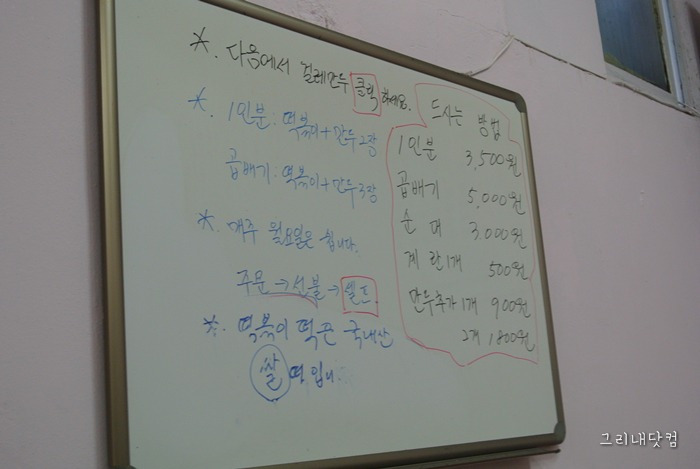 *. 다음에서 걸레만두 클릭 하세요.
*. 1인분: 떡볶이+만두2장
곱배기: 떡볶이+만두3장
*. 매주 월요일은 쉽니다.
주문→선불→셀프.
*. 떡볶이 떡은 국내산
쌀 떡입니
드시는 방법
1인분 3,500원
곱배기 5,000원
순대 3,000원
계란1개 500원
만두추가 1개 900원
2개 1800원
그리내닷컴